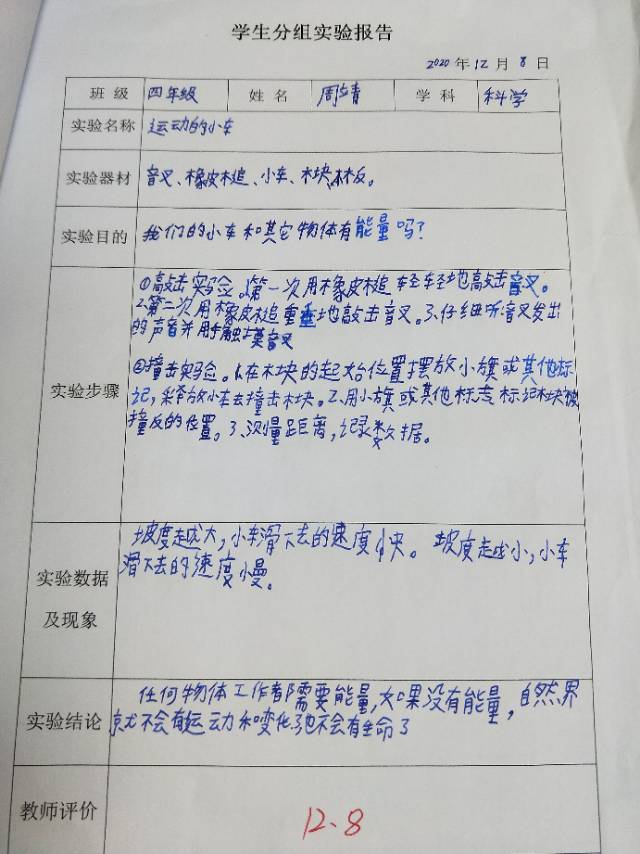 学生分组实验报告
2020年12月8日
班级 四年级 姓名 周靖 学科 科学
实验名称 运动的小车
实验器材 音叉、橡皮槌、小车、木块、木板。
实验目的 我们的小车和其它物体有能量吗?
实验步骤
①敲击实验。1.第一次用橡皮槌轻轻地敲击音叉。
2.第二次用橡皮槌重重地敲击音叉。3、仔细听音叉发出
的声音并用手触摸音叉
②撞击实验。1.在木块的起始位置摆放小旗或其他标
记,释放小车去撞击木块。2、用小旗或其他标志标记木块被
撞反的位置。3、测量距离,记录数据。
实验数据
及现象
坡度越大,小车滑下去的速度快。坡度越小,小车
滑下去的速度慢。
实验结论
任何物体工作都需要能量,如果没有能量,自然界
就不会有运动和变化,也不会有生命了
教师评价
12.8